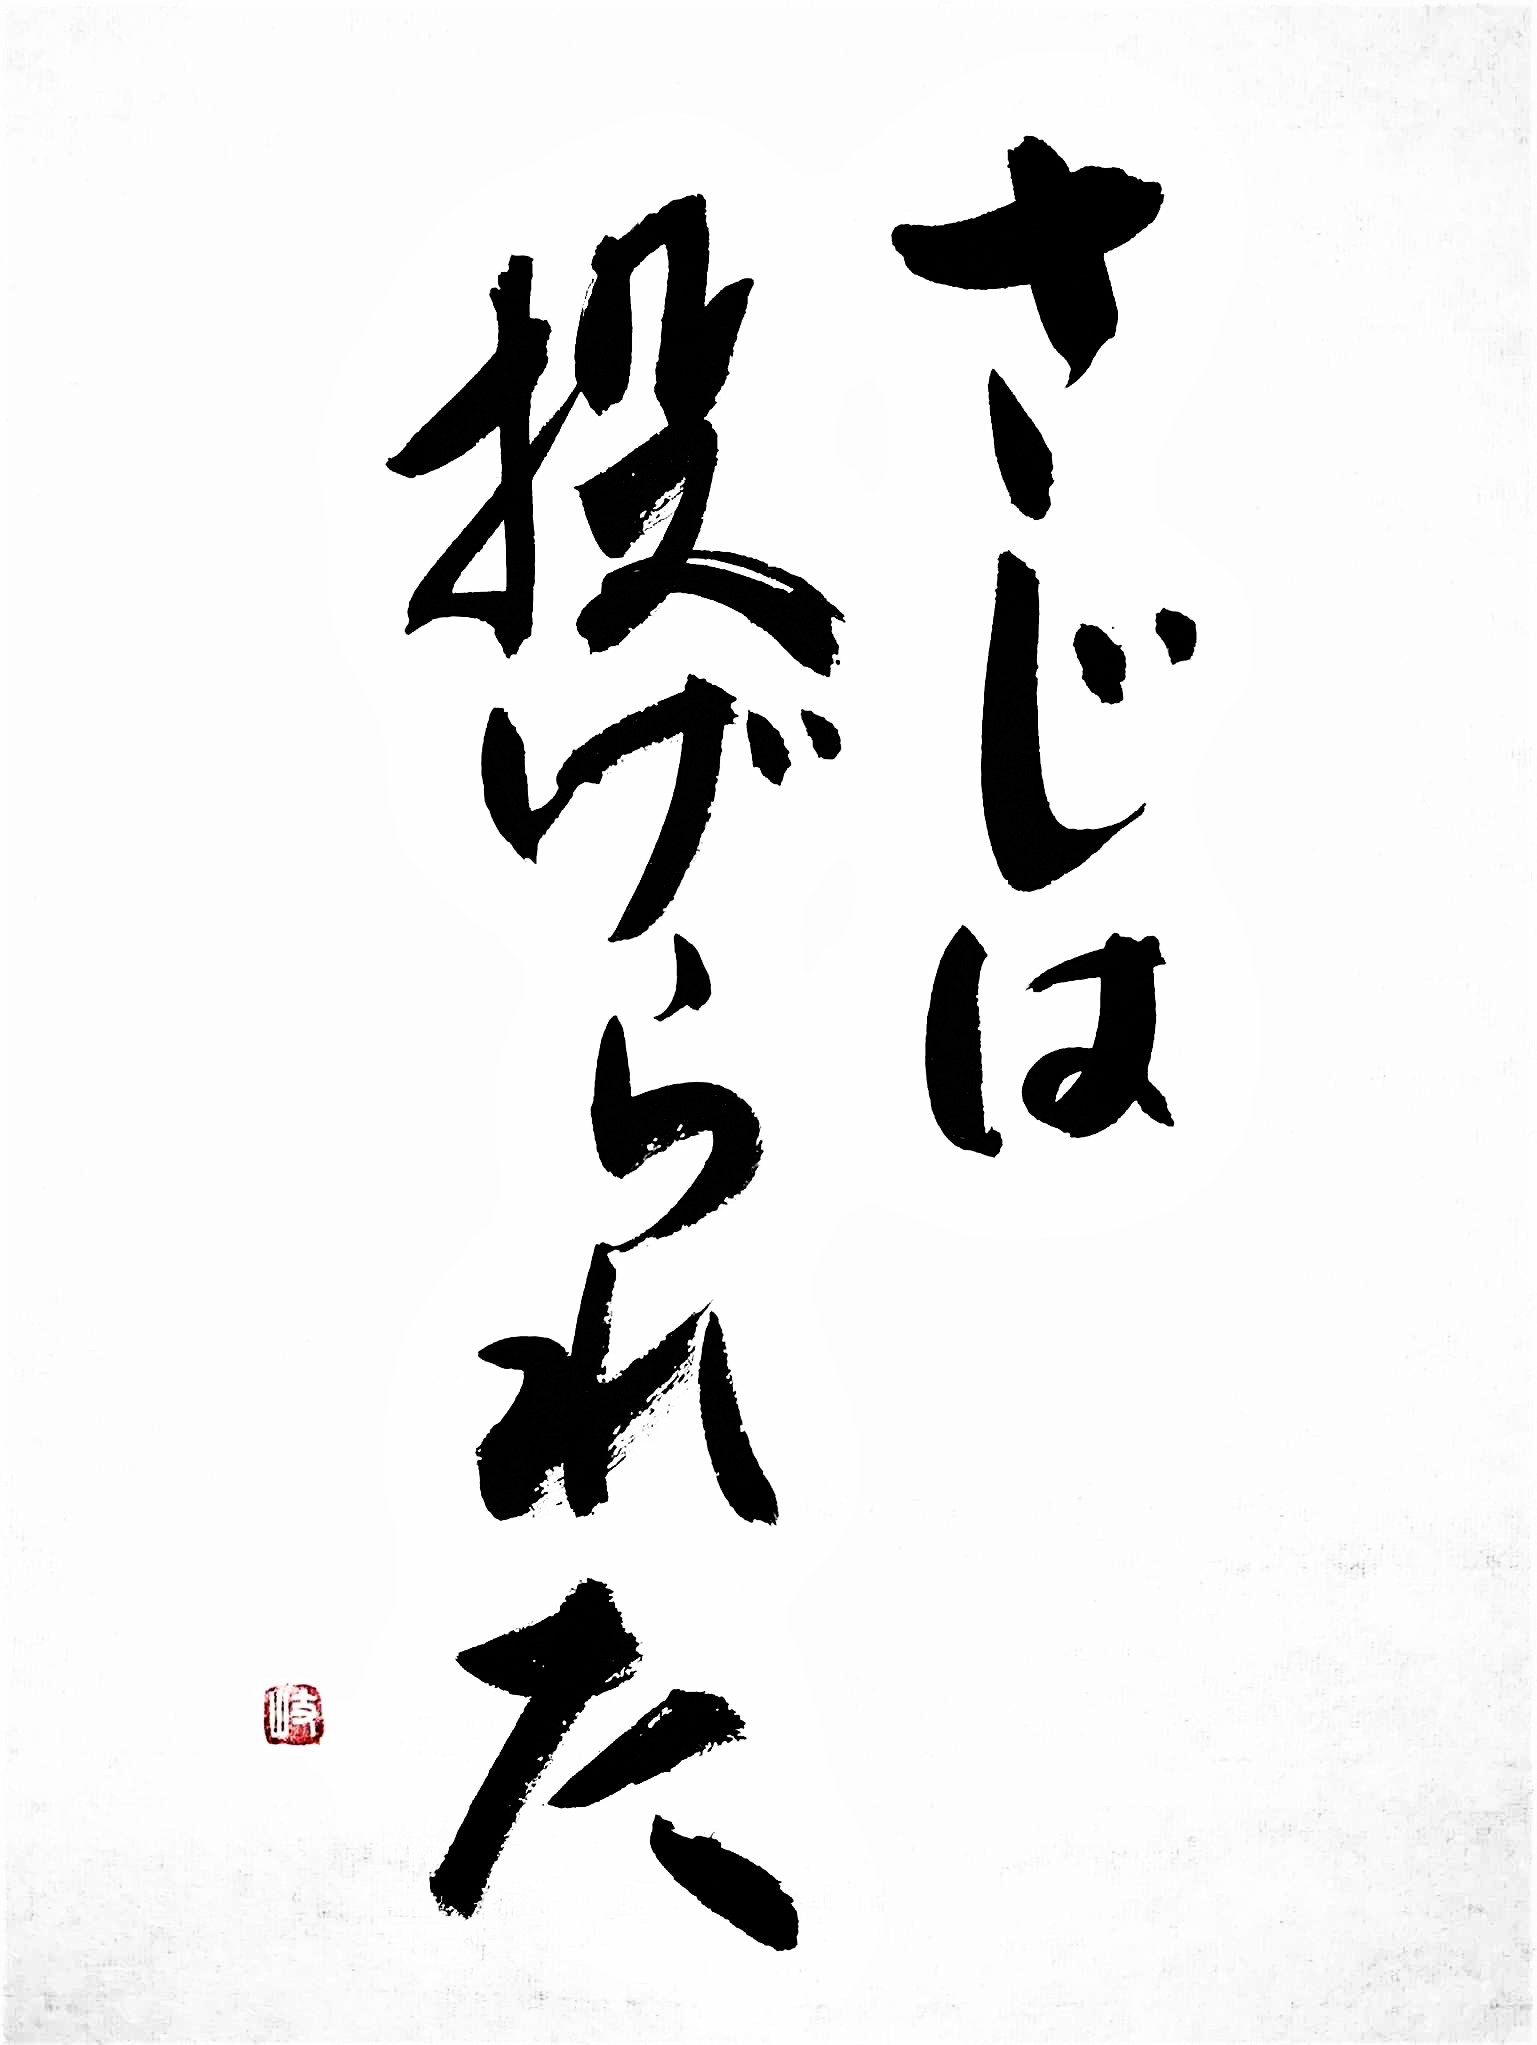 さじは
投げられた
岐